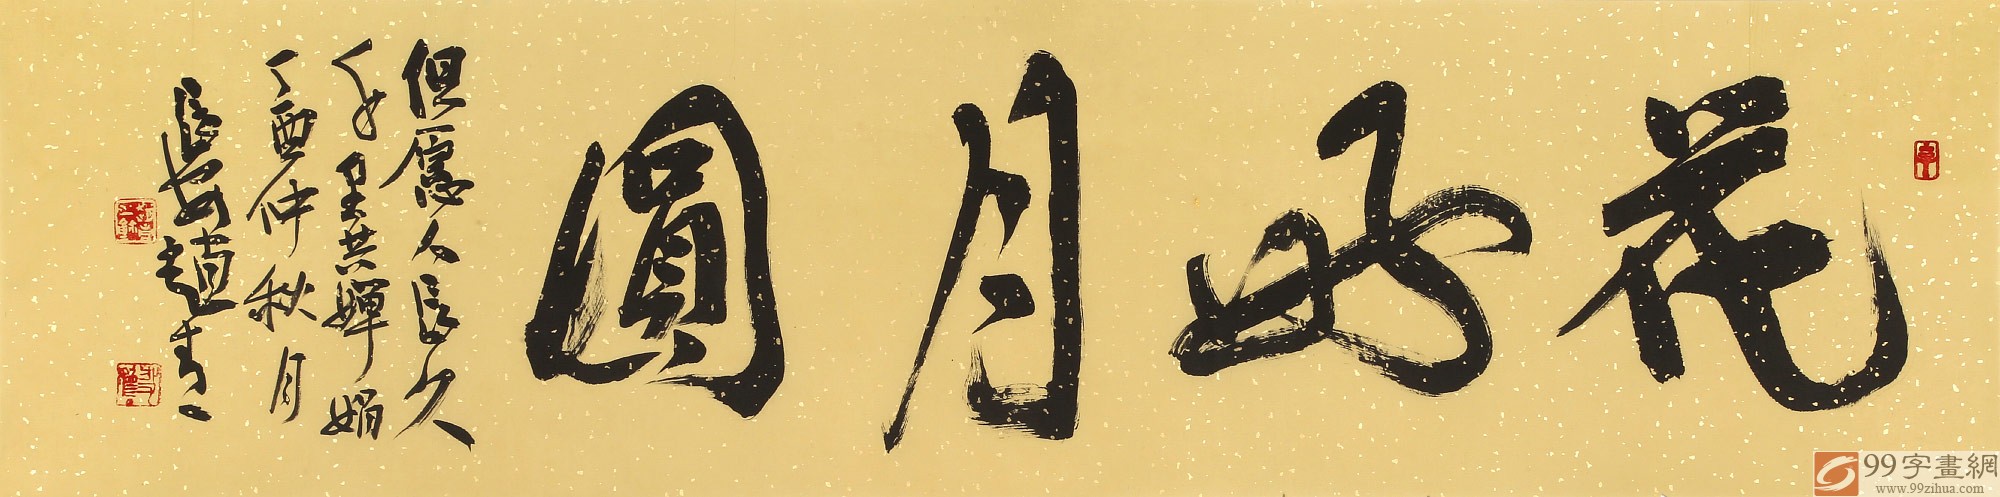 花好月圓
但愿人長久
千里共嬋娟
丁酉仲秋月
長安趙青
99字畫網
www.99zihua.com